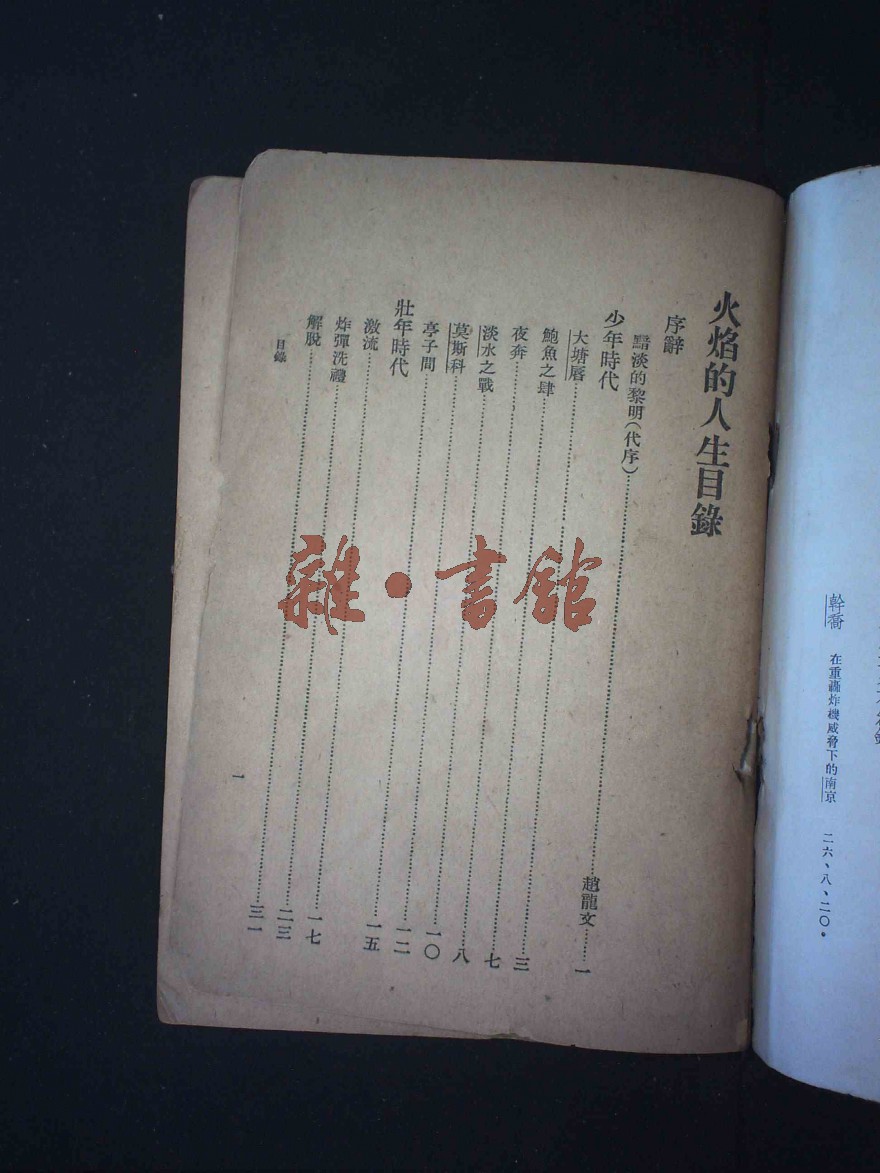 幹喬 在重轟炸機威脅下的南京 二六、八、二〇。
火焰的人生目錄
序辭
黯淡的黎明(代序)……趙龍文……一
少年時代
大塘唇……三
鮑魚之肆……七
夜奔……八
淡水之戰……一〇
莫斯科……一二
亭子間……一五
壯年時代
激流……一七
炸彈洗禮……二三
解脫……三一
目錄 一
雜·書館